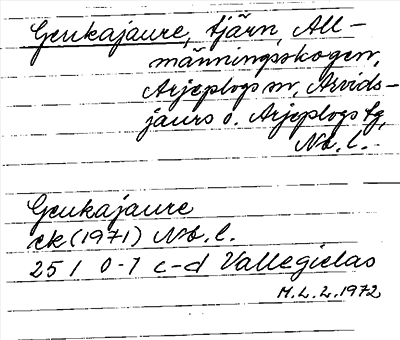 Geukajaure, tjärn, All-
männingsskogen,
Arjeplogs sn, Arvids-
jaurs o. Arjeplogs tg,
Nb. l.
Geukajaure
ek (1971) Nb. l.
25 I 0-1 c-d Vallegielas
M. L. L. 1972